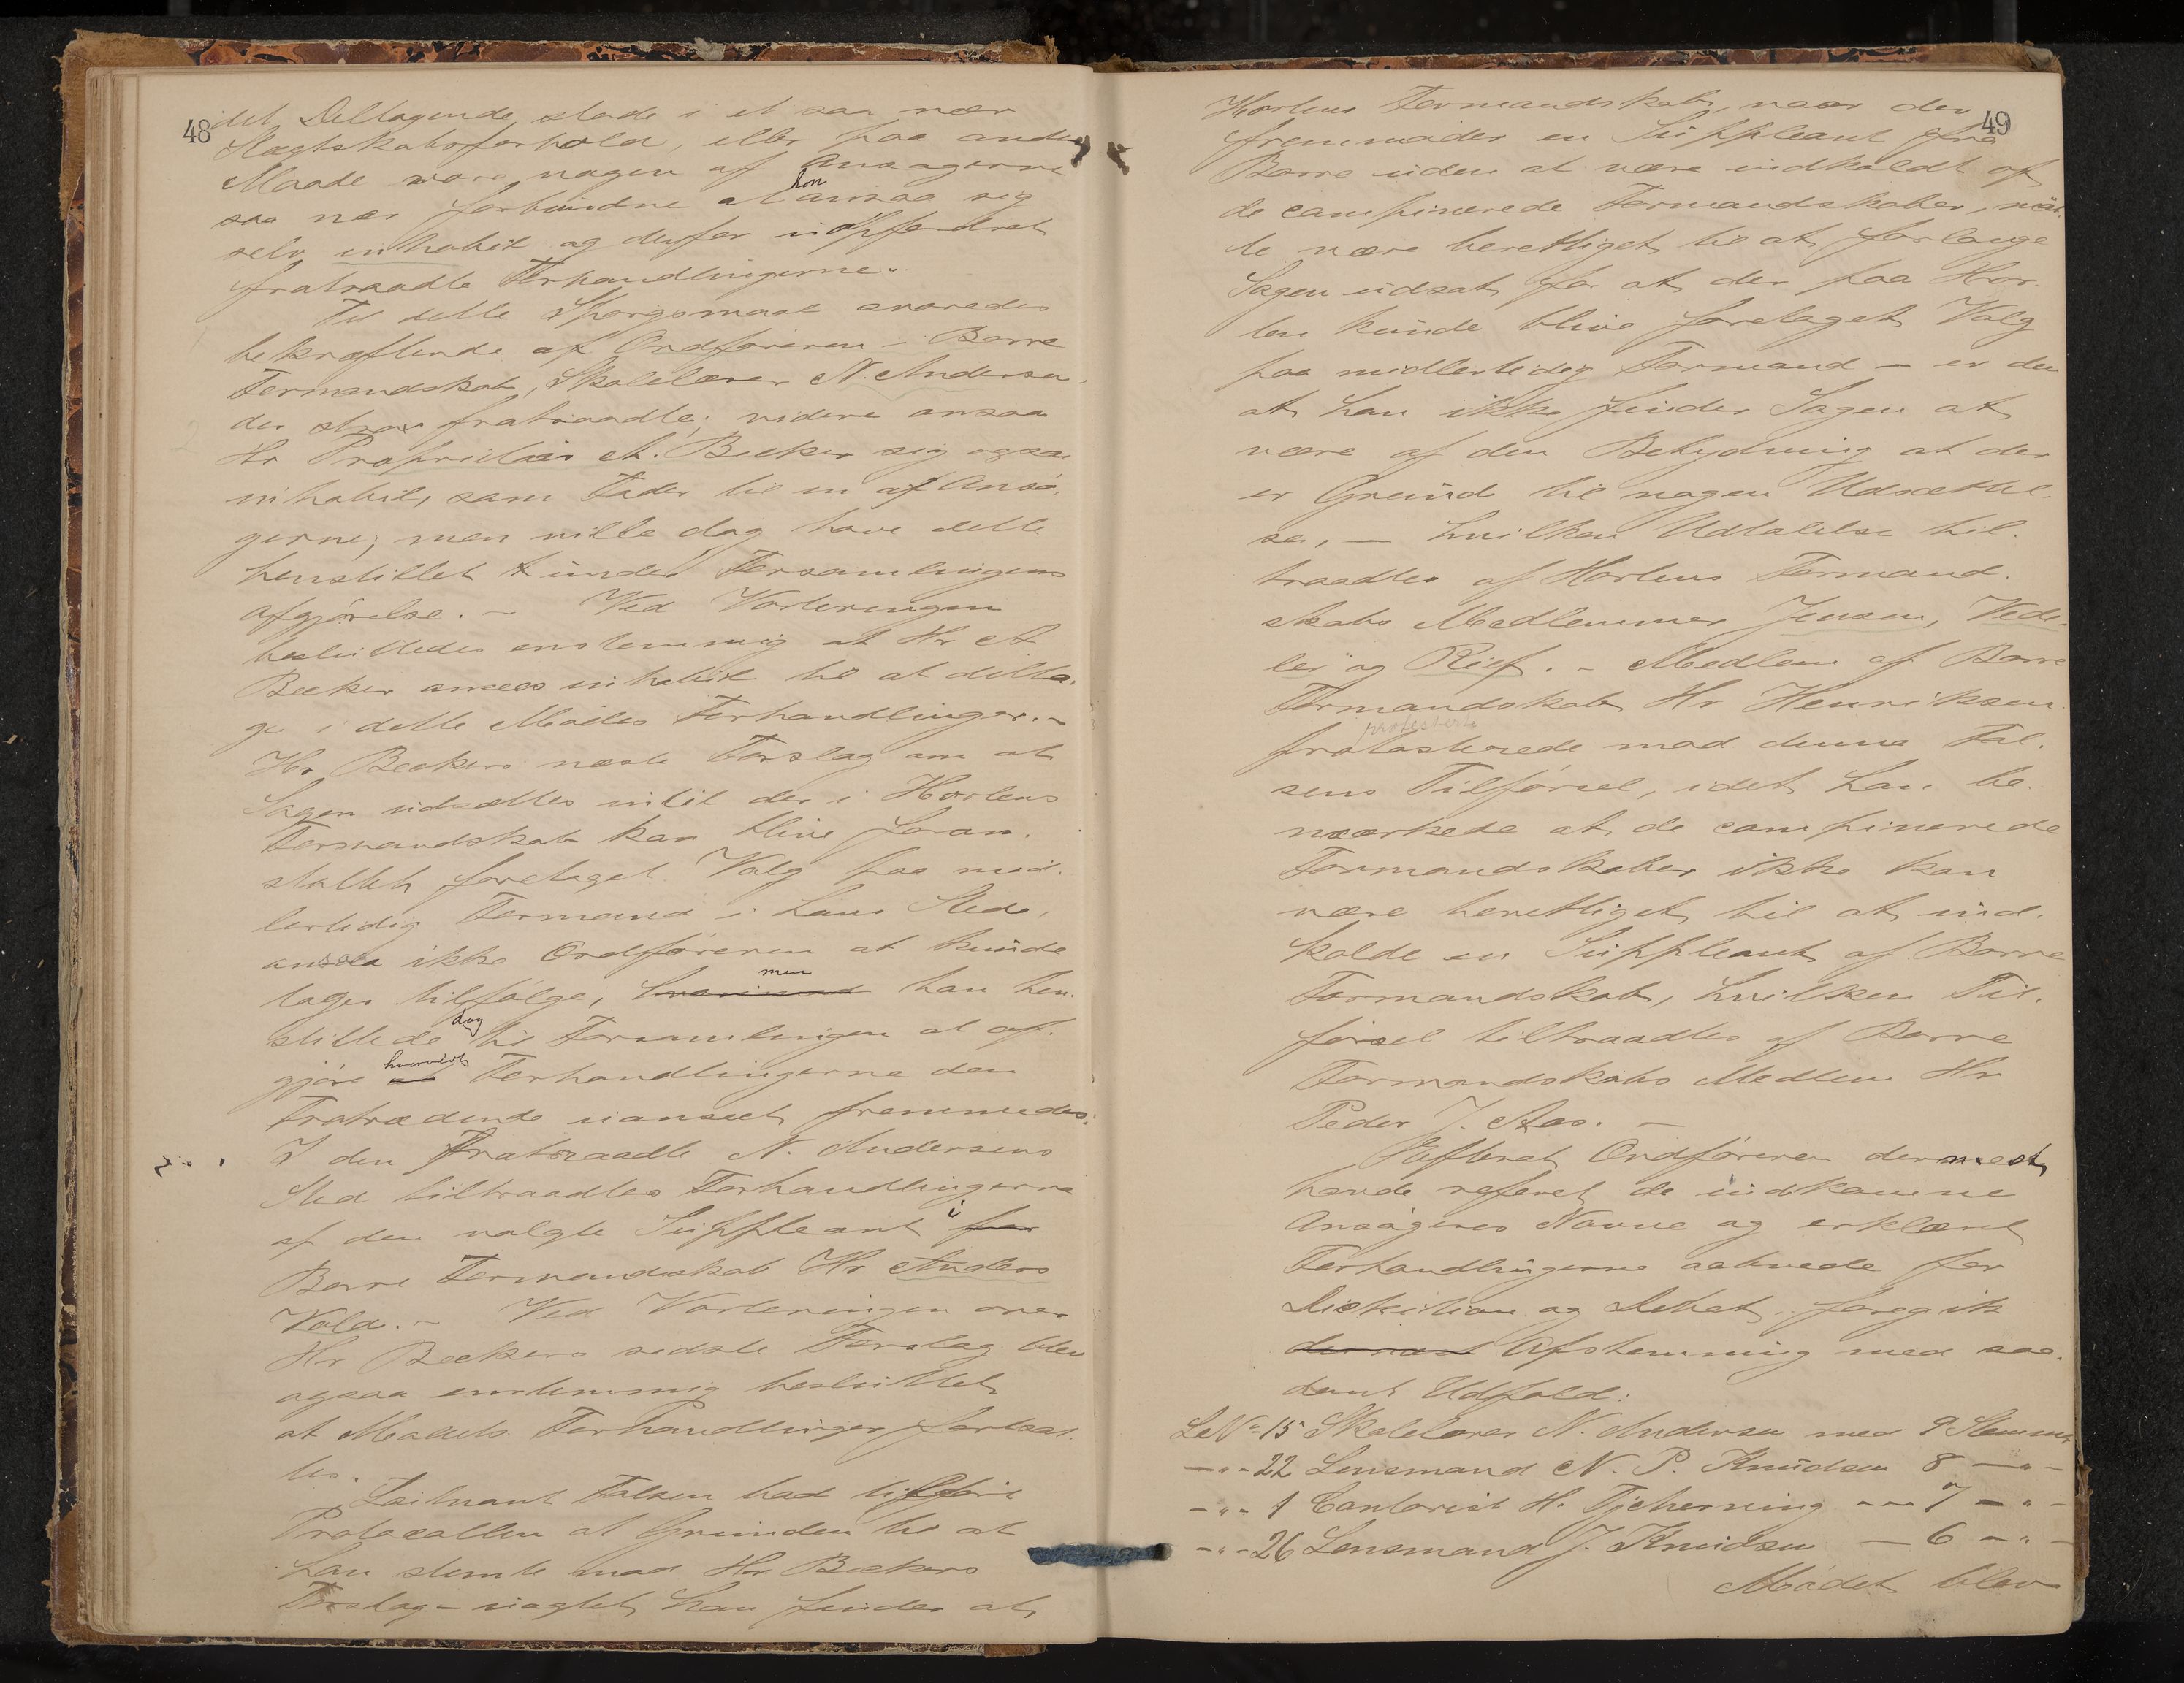 48
det Deltagende stode i et saa nær
Slægtskabsforhold, eller paa anden
Maade være nogen af Ansøgerne
saa nær forbundne at han ansaa sig
selv inhabil og derfor uopfordret
fratraadte Forhandlingerne".
Til dette Spørgsmaal svaredes
bekræftende af Ordføreren i Borre
Formandskab, Skolelærer N. Andersen,
der strax fratraadte; videre ansaa
Hr Proprietær A. Becker sig ogsaa
inhabil, som Fader til en af Ansø-
gerne; men vilde dog have dette
henstillet under Forsamlingens
Afgjørelse. – Ved Voteringen
besluttedes enstemmig at Hr A.
Becker ansees inhabil til at delta-
ge i dette Mødes Forhandlinger. –
Hr Beckers næste Forslag om at
Sagen udsættes indtil der i Hortens
Formandskab kan blive foran-
staltet foretaget Valg paa mid-
lertidig Formand i hans Sted,
ansaa ikke Ordføreren at kunde
tages tilfølge, men han hen-
stillede dog til Forsamlingen at af-
gjøre hvorvidt Forhandlingerne den
Fratrædende uanseet fremmedes.
I den fratraadte N. Andersens
Sted tiltraadtes Forhandlingerne
af den valgte Suppleant i for
Borre Formandskab Hr Anders
Vold. – Ved Voteringen over
Hr Beckers sidste Forslag blev
ogsaa enstemmig besluttet
at Mødets Forhandlinger fortsat-
tes.
Løitnant Falsen bad tilført
Protocollen at Grunden til at
han stemte mod Hr Beckers
Forslag – uagtet han finder at
49
Hortens Formandskab, naar der
fremmøder en Suppleant fra
Borre uden at være indkaldt af
de campinerede Formandskaber, maat-
te være berettiget til at forlange
Sagen udsat for at der paa Hor-
ten kunde blive foretaget Valg
paa midlertidig Formand – er den
at han ikke finder Sagen at
være af den Betydning at der
er Grund til nogen Udsættel-
se, – hvilken Udtalelse til-
traadtes af Hortens Formand-
skabs Medlemmer Jensen, Vede-
ler og Rief. – Medlem af Borre
Formandskab Hr Henriksen
protesterede mod denne Fal-
sens Tilførsel, idet han be-
mærkede at de campinerede
Formandskaber ikke kan
være berettiget til at ind-
kalde en Suppleant af Borre
Formandskab, hvilken Til-
førsel tiltraadtes af Borre
Formandskabs Medlem Hr
Peder J. Aas. –
Efterat Ordføreren dernæst
havde referet de indkomne
Ansøgeres Navne og erklæret
Forhandlingerne aabnede for
Diskution og Debat, foregik
dernæst Afstemning med saa-
dant Udfald:
Le No 15 Skolelærer N. Andersen med 9 Stemmer
– " – 22 Lensmand N. P. Knudsen 8 – " –
– " – 1 Contorist H. Tjcherning – " – 7 – " –
– " – 26 Lensmand J. Knudsen – 6 – " –
Mødet blev